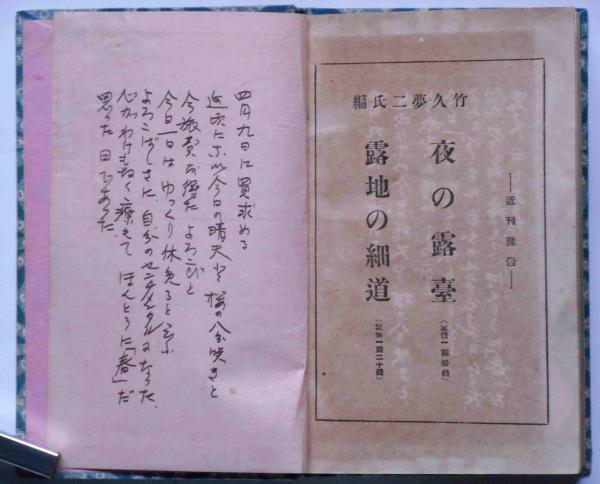 ―近刊豫告―
夜の露臺
(定價一圓拾錢)
竹久夢二氏編
露地の細道
(定價一圓二十錢)
四月九日に買求める
近頃にない今日の晴天と 桜の八分咲きと
今旅費お得た よろこびと
今日一日は ゆっくり休めると云ふ
よろこばしさに、自分のセンチメンタルになった
心がわけもなく療えて ほんとうに「春」だ
思った日であった。